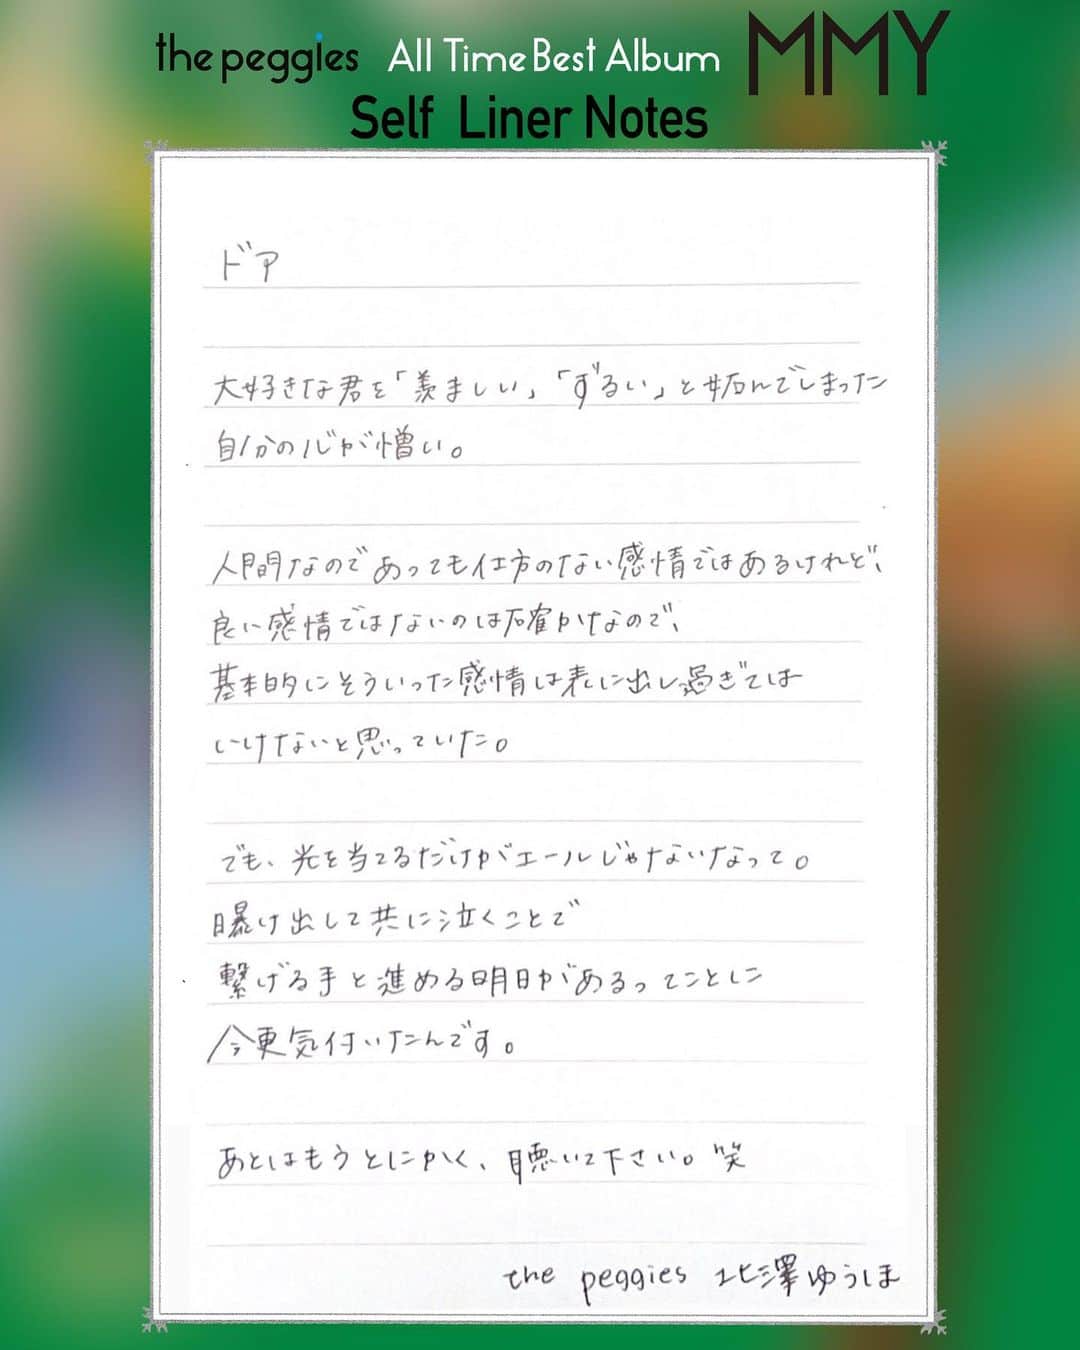 the peggies All Time Best Album MMY
Self Liner Notes
ドア
大好きな君を「羨ましい」「ずるい」と妬んでしまった
自分の心が憎い。
人間なのであっても仕方のない感情ではあるけれど、
良い感情ではないのは確かなので、
基本的にそういった感情は表に出し過ぎては
いけないと思っていた。
でも、光を当てるだけがエールじゃないなって。
曝け出して共に泣くことで
繋げる手と進める明日があるってことに
今更気付いたんです。
あとはもうとにかく、聴いて下さい。笑
the peggies 北澤ゆうほ